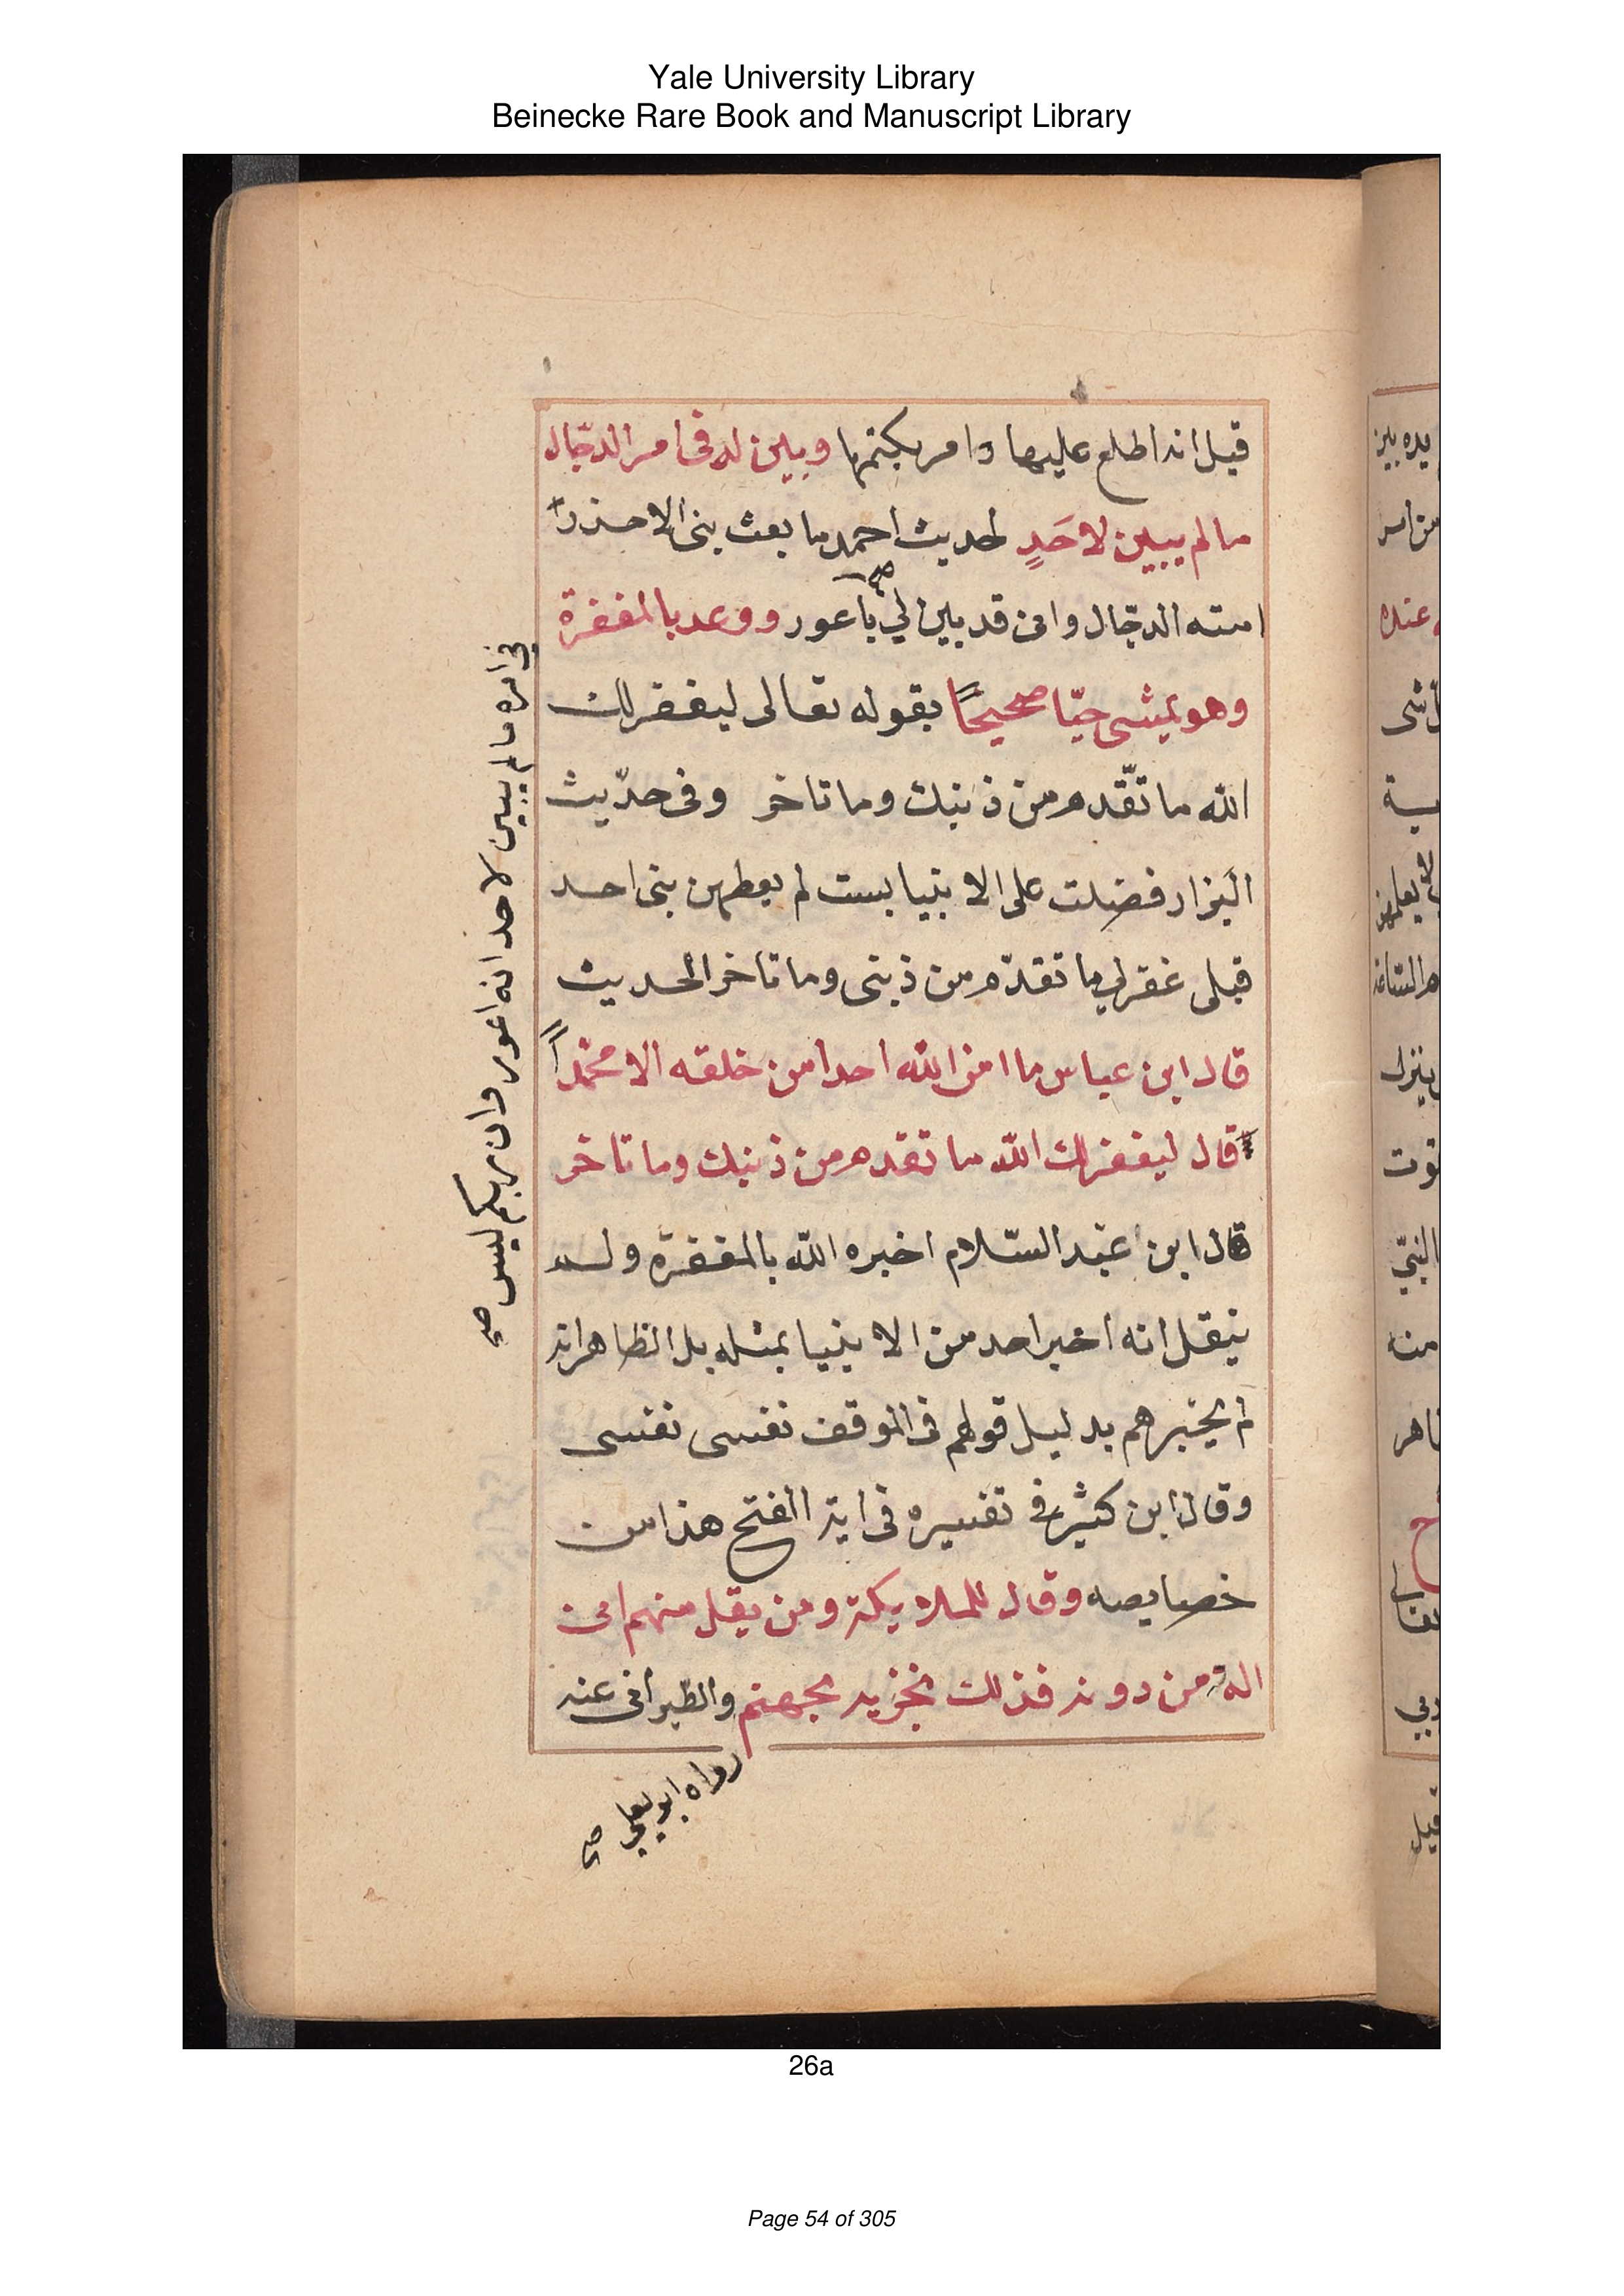 Yale University Library
Beinecke Rare Book and Manuscript Library
قيل انه اطلع عليها وامر بكتمها وبين له فى امر الدجّال
ما لم يبين لاحَدٍ لحديث احمد ما بعث نبى الا حذر
امته الدجّال وانى قد بين لي باعور ووعد بالمغفرة
وهو يمشى حيّا صحيحًا بقوله تعالى ليغفر لك
الله ما تقّدم من ذنبك وما تاخر وفى حدّيث
البزار فضلت على الانبيا بست لم يعطهن نبى احد
قبلى غفر لي ما تقدّم من ذنبى وما تاخر الحديث
قال ابن عباس ما امن الله احدا من خلقه الا محمّداً
قال ليغفر لك اللّه ما تقدم من ذنبك وما تاخر
قال ابن عبد السّلام اخبره اللّه بالمغفرة ولم
ينقل انه اخبر احد من الانبيا بمثله بل الظاهر انه
لم يخبرهم بدليل قولهم فى الموقف نفسى نفسى
وقال ابن كثير في تفسيره فى اية الفتح هذا من
خصايصه وقال للملايكة ومن يقل منهم انى
اله من دونه فذلك نجزيه جهنم والطبرانى عنه
فى امره ما لم يبين لاحد انه اعور وان ربكم ليس صح
رواه ابو يعلي صح
يده بين
من امر
عنده
ينزل
النبيّ
منه
قيل
26a
Page 54 of 305